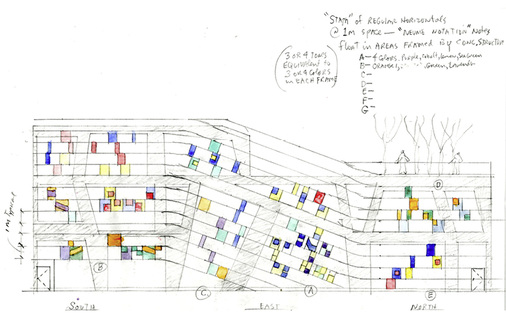 "STAFF" of REGULAR HORIZONTALS
@ 1m SPACE — "NEUME NOTATION" Notes
float in AREAS FRAMED by CONC. STRUCTURE
A — 4 Colors, Purple, Cobalt, Lemon, Seagreen
B — ORANGES, Green, Lavender
C —
D —
E —
F —
G —
3 OR 4 TONS
EQUIVALENT to
3 or 4 COLORS
in EACH FRAME
1 M
B
C
A
D
E
SOUTH
EAST
NORTH